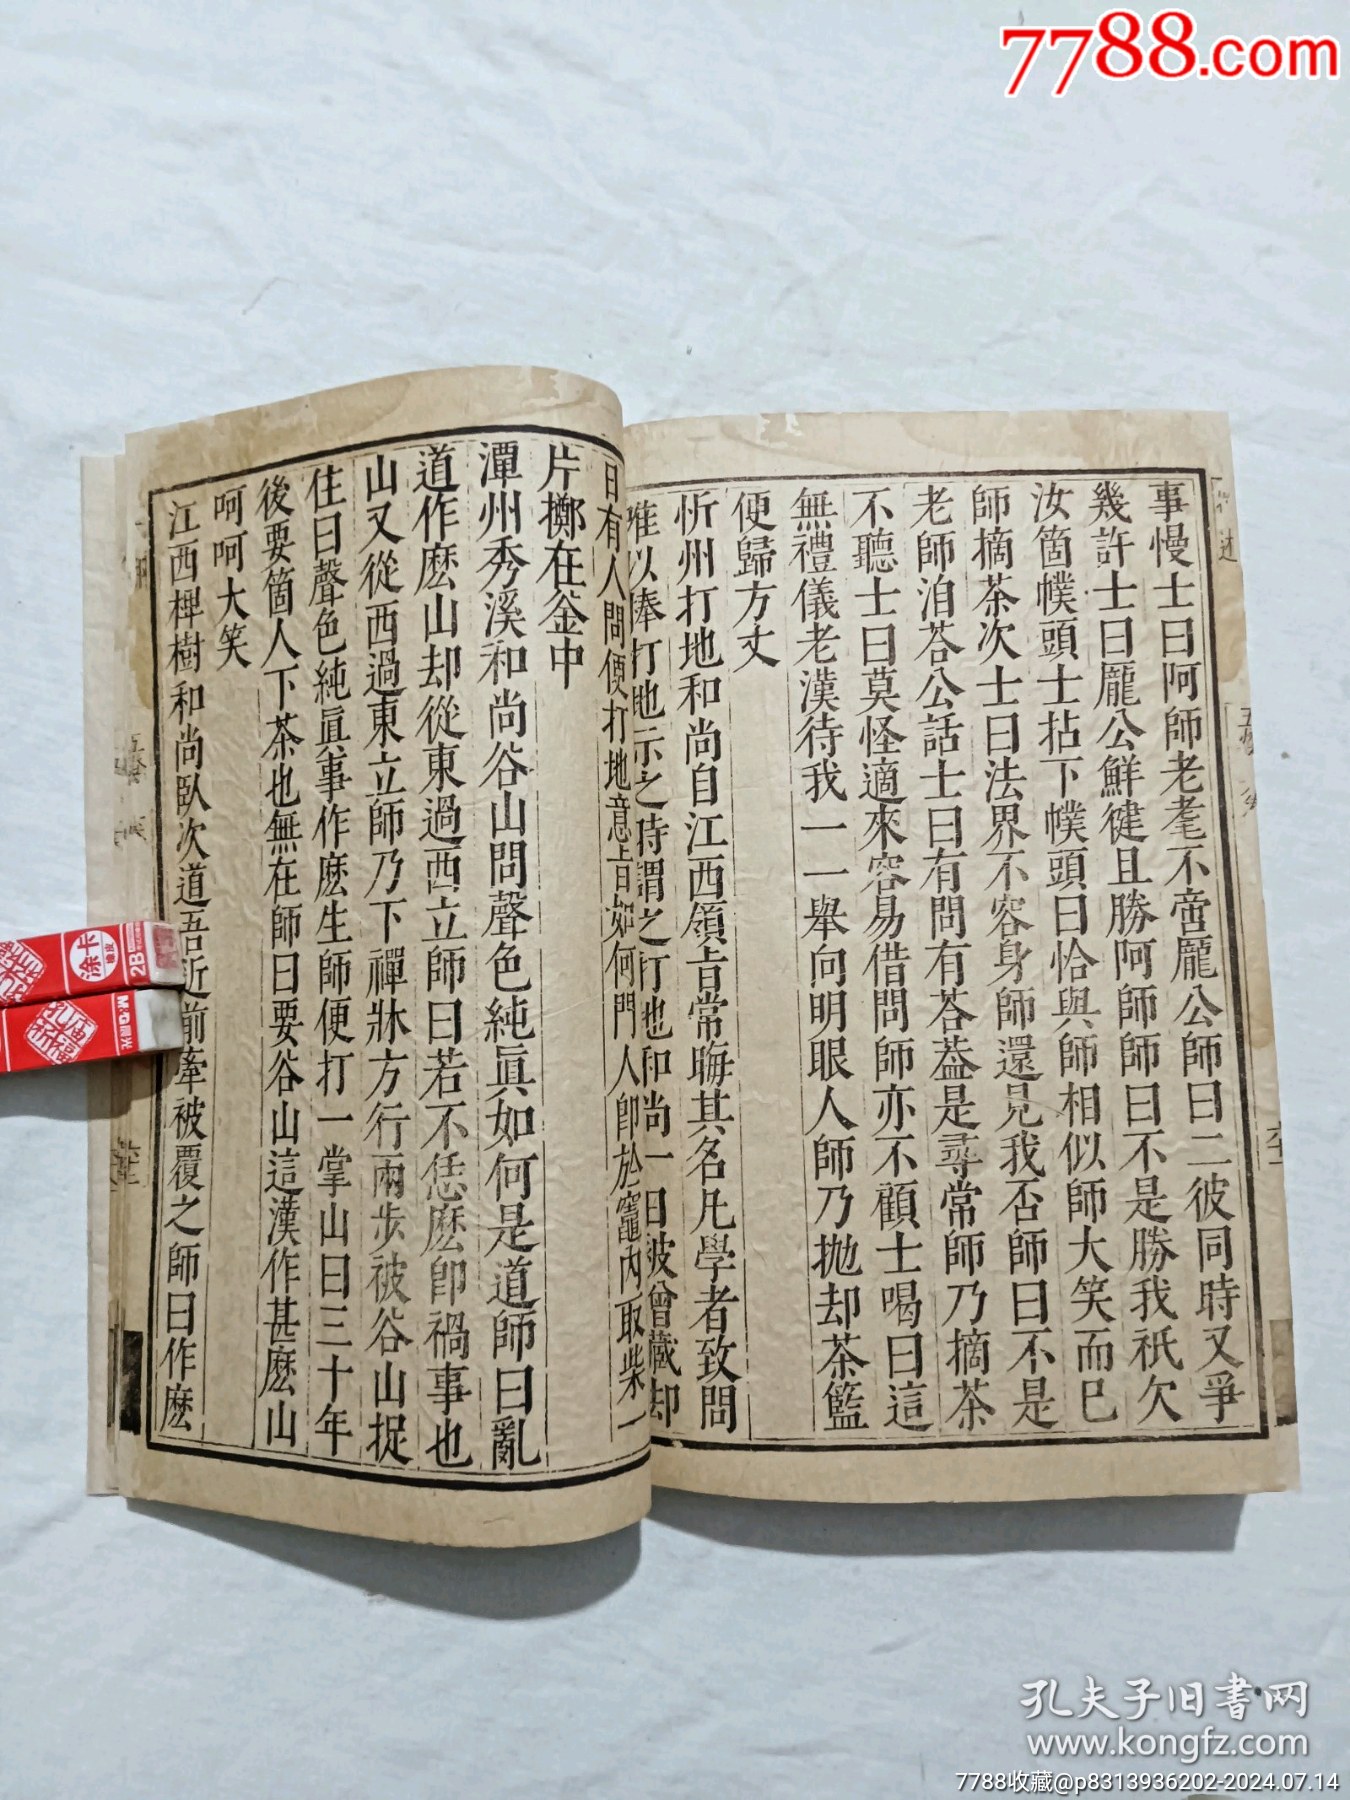 7788.com
事慢士曰阿師老耄不啻龐公師曰二彼同時又爭
幾許士曰龐公鮮健且勝阿師師曰不是勝我祇欠
汝箇幞頭士拈下幞頭曰恰與師相似師大笑而已
師摘茶次士曰法界不容身師還見我否師曰不是
老師洎荅公話士曰有問有荅葢是尋常師乃摘茶
不聽士曰莫怪適來容易借問師亦不顧士喝曰這
無禮儀老漢待我一一舉向明眼人師乃拋却茶籃
便歸方丈
忻州打地和尚自江西領㫖常晦其名凡學者致問
唯以棒打地示之時謂之打地和尚一日被曾藏却
日有人問便打地意㫖如何門人即於竈內取柴一
片擲在釜中
潭州秀溪和尚谷山問聲色純眞如何是道師曰亂
道作麽山却從東過西立師曰若不恁麽即禍事也
山又從西過東立師乃下禪牀方行兩步被谷山捉
住曰聲色純眞事作麽生師便打一掌山曰三十年
後要箇人下茶也無在師曰要谷山這漢作甚麽山
呵呵大笑
江西椑樹和尚臥次道吾近前牽被覆之師曰作麽
涂卡
2B
M&G
孔庙祈福
孔夫子旧書网
www.kongfz.com
7788收藏@p8313936202-2024.07.14